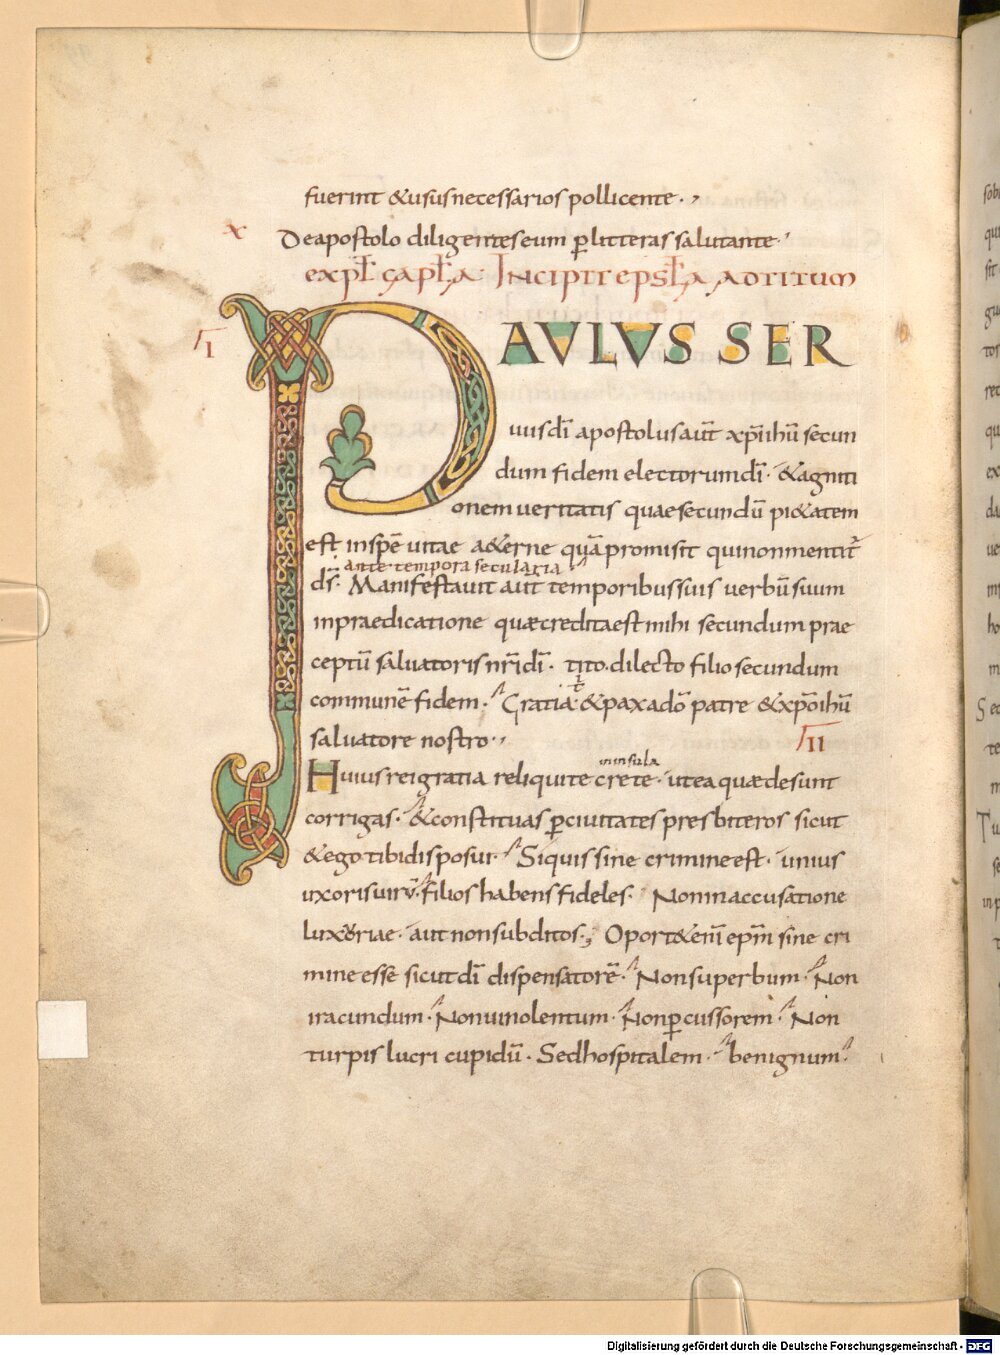 fuerint &ususnecessarios pollicente.,
X
Deapostolo diligenteseum perlitteras salutante.
expl capla. Incipit epsla ad titum
I
PAULUS SER
uusdī apostolusaut xpīihū secun
dum fidem electorumdī. &agniti
onem ueritatis quaesecundū pi&atem
est inspē uitae a&erne quāpromisit quinonmentit
ante tempora secularia
ds. Manifestauit aut temporibussuis uerbūsuum
inpraedicatione quaecreditaestmihi secundum prae
ceptū saluatorisnrīdī. tito.dilecto filiosecundum
communē fidem. Gratia &paxadō patre &xpōihū
saluatore nostro.,
II
ininsula
Huiusreigratia reliquite crete. utea quaedesunt
corrigas. &constituas perciuitates presbiteros sicut
&ego tibidisposui. Siquissine crimineest. unius
uxorisuir. filios habensfideles. Noninaccusatione
luxoriae. autnonsubditos., Oport&enī epm sine cri
mineesse sicutdī dispensatorē. Nonsuperbum. Non
iracundum. Nonuinolentum. Nonpercussorem. Non
turpis lucri cupidū. Sedhospitalem. benignum.
Digitalisierung gefördert durch die Deutsche Forschungsgemeinschaft - DFG